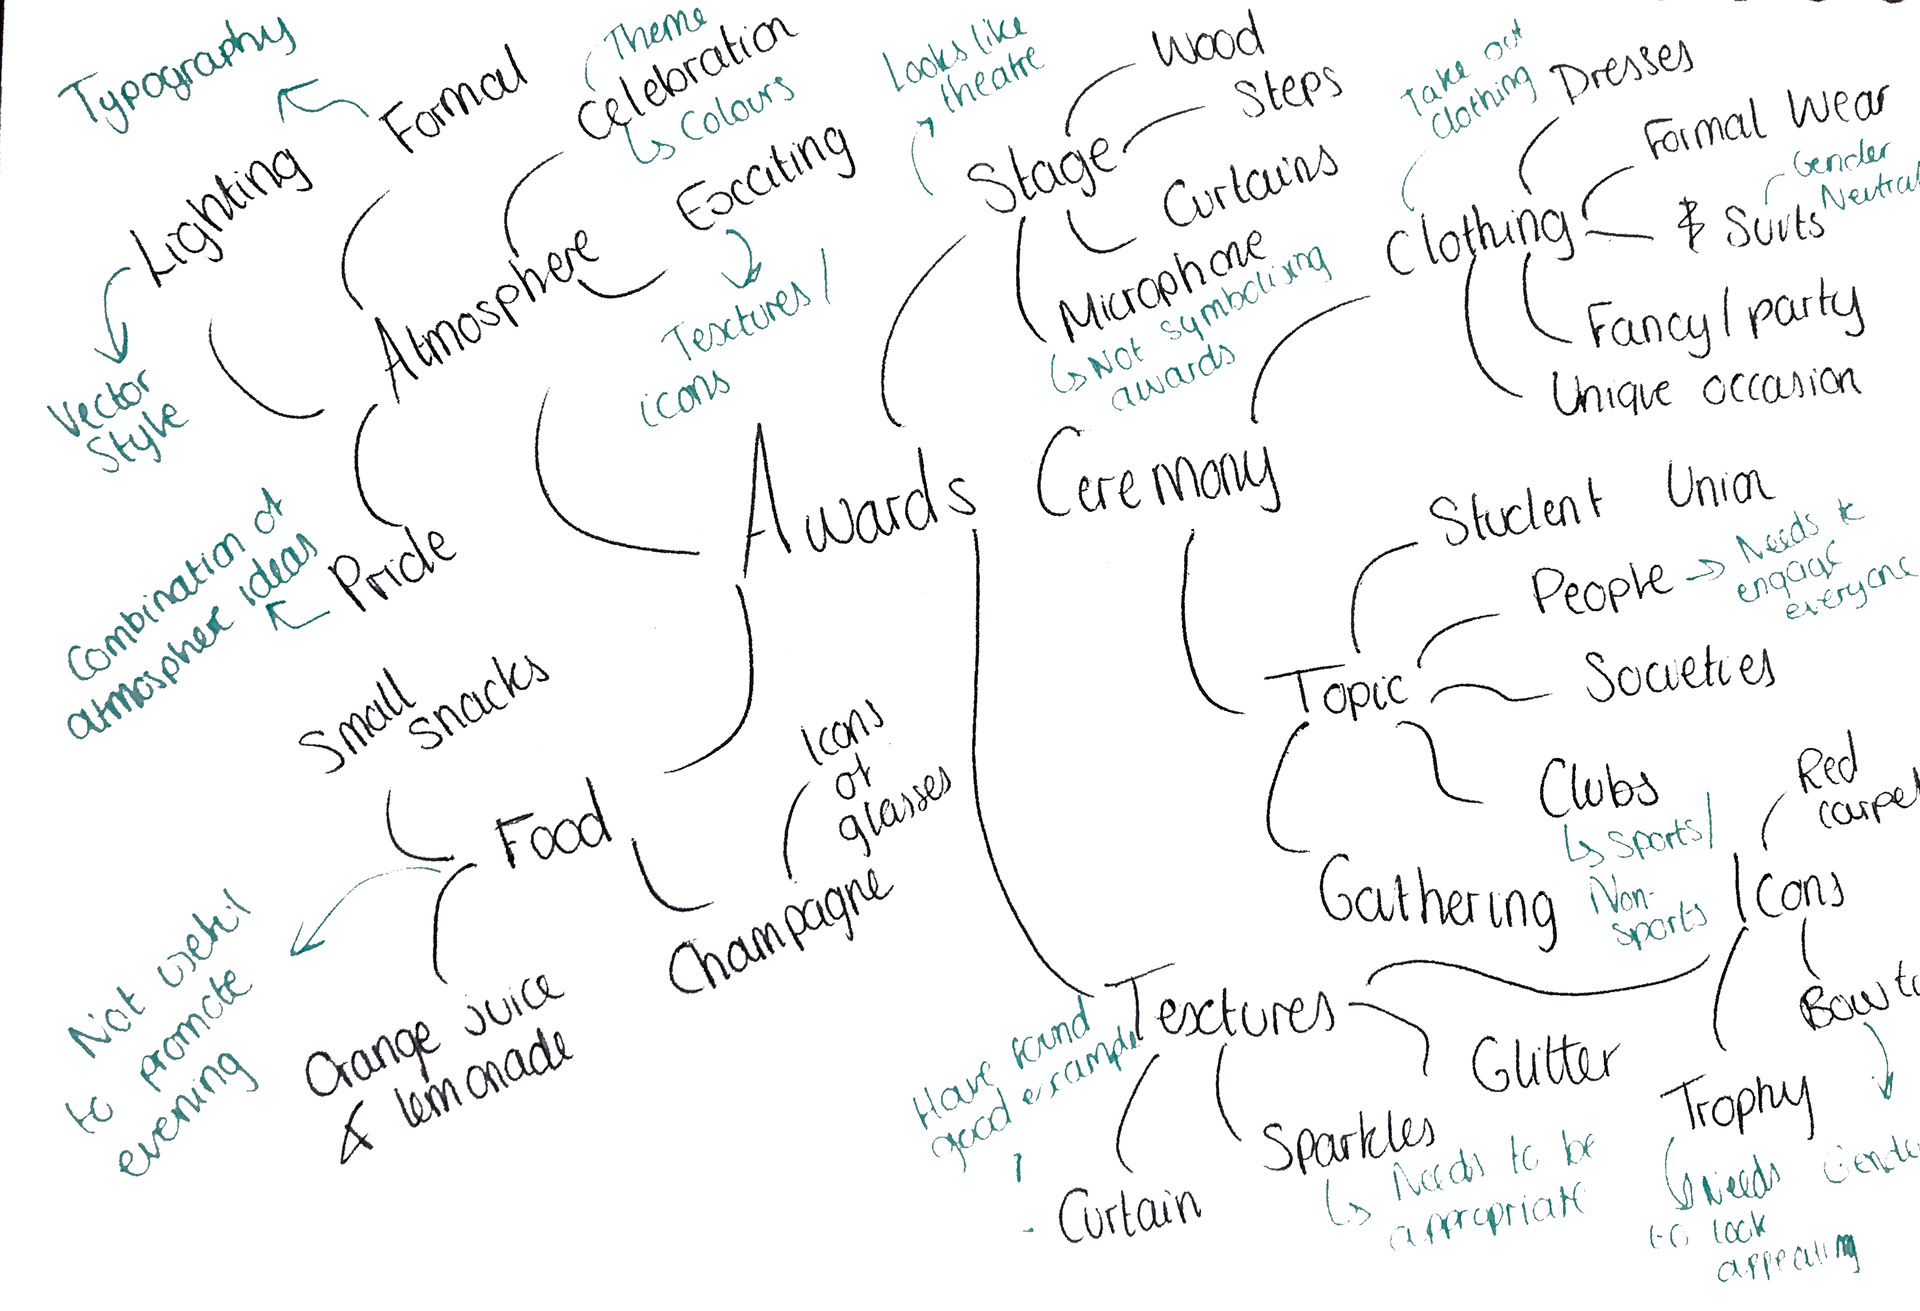 Typography
Formal
Theme
Celebration
Colours
Exciting
Textures /
icons
Lighting
Vector
Style
Atmosphere
Combination of
atmospher ideas
Pride
Looks like
theatre
Stage
Wood
Steps
Curtains
Microphone
Not symbolising
awards
Take out
clothing
Clothing
Dresses
Formal Wear
Gender
Neutral
Suits
Fancy / party
Unique occasion
Awards Ceremony
Student Union
People
Needs to
engage
everyone
Topic
Societies
Clubs
Sports/
Non-
sports
Gathering
Small
snacks
Food
Icons
of
glasses
Champagne
Orange juice
& lemonade
Not useful
to promote
evening
Textures
Have found
good example
Curtain
Sparkles
Needs to be
appropriate
Glitter
Icons
Red
carpet
Bow
Trophy
Needs
to look
appealing